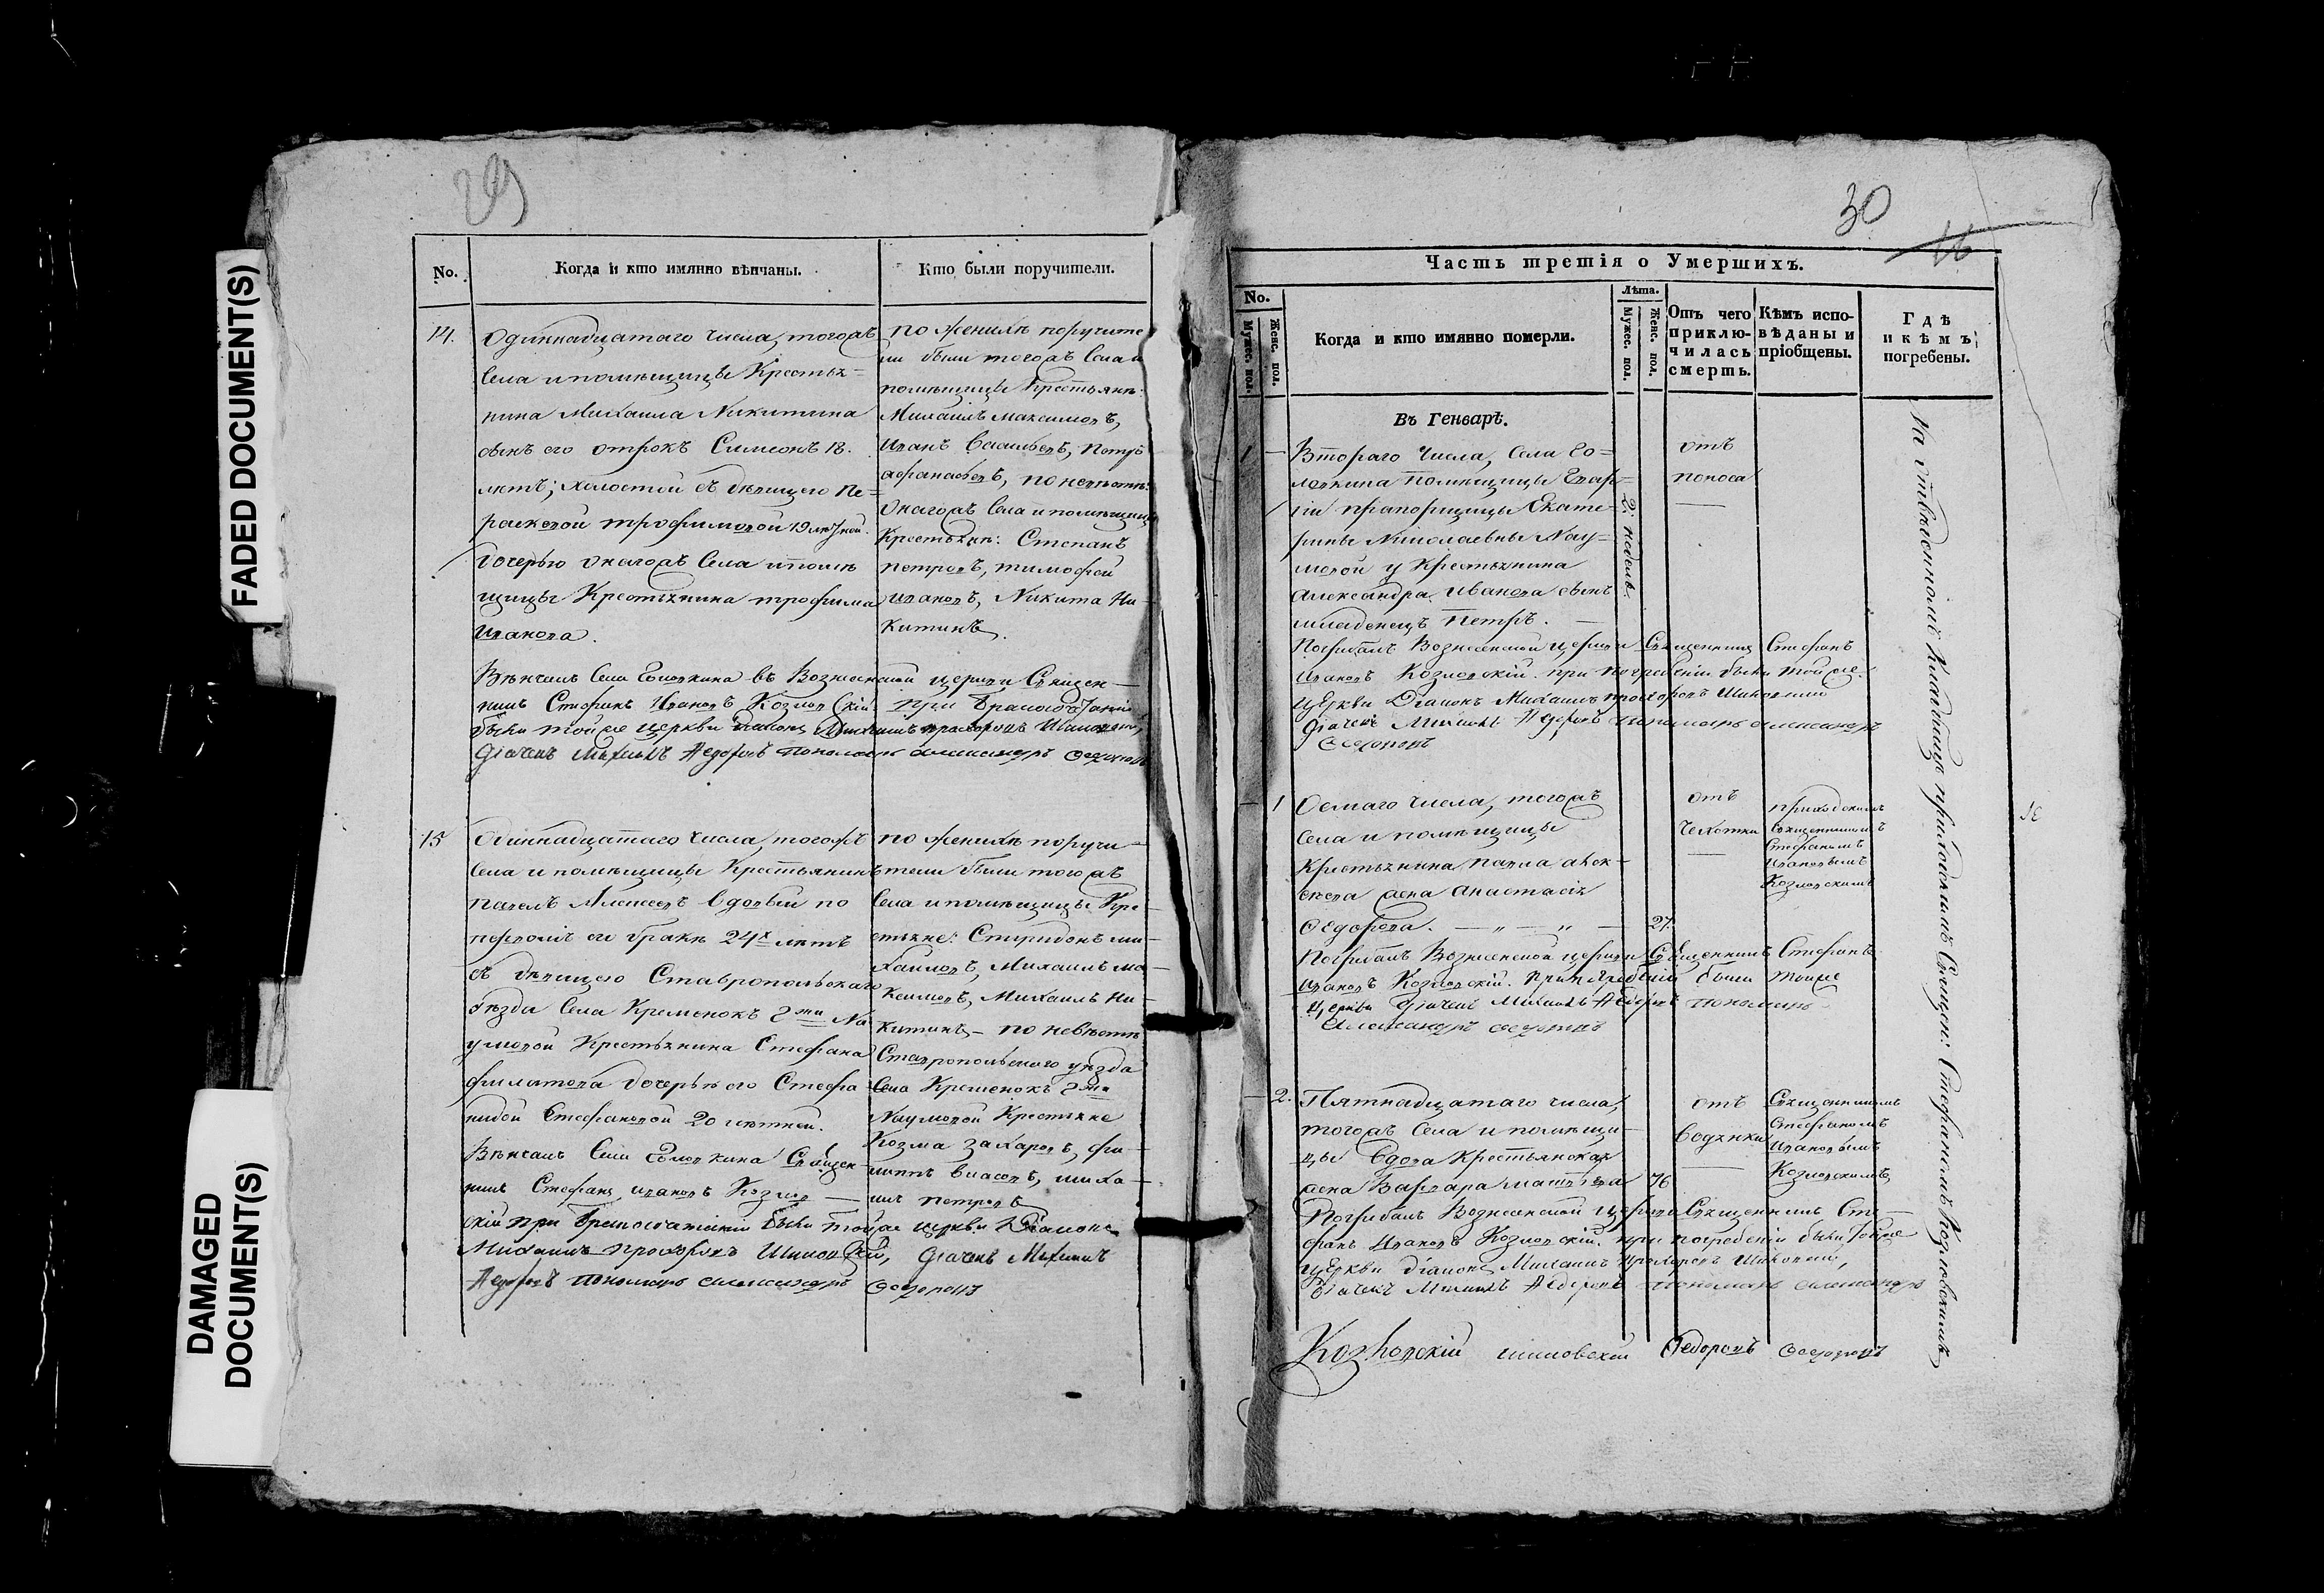 FADED DOCUMENT(S)
DAMAGED
DOCUMENT(S)
29
No.
Когда и кто имянно вѣнчаны.
Кто были поручители.
14.
Одиннадцатаго числа, тогожъ
Села и помѣщицы Крестья=
нина Михаила Никитина
сынъ его отрокъ Симеонъ 18.
лѣтъ; холостой съ дѣвицею Па=
расковой Трофимовой 19 лѣтной
дочерью онагожъ Села и помѣ
щицы Крестьянина Трофима
Иванова.
по женихѣ поручите
ли были тогожъ Села и
помѣщицы Крестьянѣ:
Михаилъ Максимовъ,
Иванъ Васильевъ, Петръ
Афанасьевъ, по невѣстѣ:
Онагожъ Села и помѣщицы
Крестьянѣ: Степанъ
Петровъ, Тимофей
Ивановъ, Никита Ни
китинъ.
Вѣнчалъ Села въ Вознесенской церкви Священ—
никъ Стефанъ Ивановъ Козловскій При Бракосочетаніи
были тойже церкви Діаконъ Михаилъ Прохоровъ
Дїячекъ Михаилъ Федоровъ пономарь Александръ Федоровъ
15
Одиннадцатаго числа, тогожъ
Села и помѣщицы Крестьянинъ
Павелъ Алексеевъ вдовый по
первомъ его бракѣ 24х лѣтъ
съ дѣвицею Ставропольскаго
уѣзда Села Кременокъ Гжи На
умовой Крестьянина Стефана
Филатова дочерью его Стефа
нидой Стефановой 20 лѣтней.
по женихѣ поручи—
тели были тогожъ
Села и помѣщицы Кре—
стьяне: Спиридонъ Ми—
хайловъ, Михаилъ Ма—
ксимовъ, Михаилъ Ни—
китинъ, — по невѣстѣ
Ставропольскаго уѣзда
Села Кременокъ Гжи
Наумовой Крестьяне
Козма Захаровъ, Фи—
липпъ Власовъ, Миха—
илъ Петровъ
Вѣнчалъ Села Священ
никъ Стефанъ Ивановъ Козлов —
скій при бракосочетаніи были тойже церкви Діаконъ
Михаилъ Прохоровъ Дїячекъ Михаилъ
Федоровъ пономарь Александръ Федоровъ
30
16
Часть третія о Умершихъ.
No.
Мужес. пол.
Женс. пол.
Когда и кто имянно померли.
Лѣта.
Мужес. пол.
Женс. пол.
Отъ чего
приклю-
чилась
смерть.
Кѣмъ испо-
вѣданы и
пріобщены.
Гдѣ
и кѣмъ
погребены.
Въ Генварѣ.
1 —
Втораго числа, Села
помѣщицы Гвар=
діи прапорщицы Екате=
рины Николаевны Нау=
мовой у Крестьянина
Александра Иванова сынъ
младенецъ Петръ.
2. недель.
отъ
поноса
Погребалъ Вознесенской церкви Священникъ Стефанъ
Ивановъ Козловскій. при погребеніи были тойже
церкви Діаконъ Михаилъ Прохоровъ
Дїячекъ Михаилъ Федоровъ пономарь Александръ
Федоровъ
— 1
Осмаго числа, тогожъ
Села и помѣщицы
Крестьянина Павла Алек—
сѣева жена Анастасія
Федорова. — „ — „ —
27.
отъ
чехотки
приходскимъ
Священникомъ
Стефаномъ
Ивановымъ
Козловскимъ
Погребалъ Вознесенской церкви Священникъ Стефанъ
Ивановъ Козловскій. При погребеніи были тойже
церкви Дїячекъ Михаилъ Федоровъ пономарь
Александръ Федоровъ
— 2.
Пятнадцатаго числа,
тогожъ Села и помѣщи—
цы вдова Крестьянская
жена Варвара
76
отъ
водянки
Священникомъ
Стефаномъ
Ивановымъ
Козловскимъ
Погребалъ Вознесенской церкви Священникъ Сте—
фанъ Ивановъ Козловскій. при погребеніи были тойже
церкви Діаконъ Михаилъ Прохоровъ
Дїячекъ Михаилъ Федоровъ пономарь Александръ
Козловскій Федоровъ Федоровъ
На отведенномъ кладбищѣ приходскимъ Священ: Стефаномъ Козловскимъ